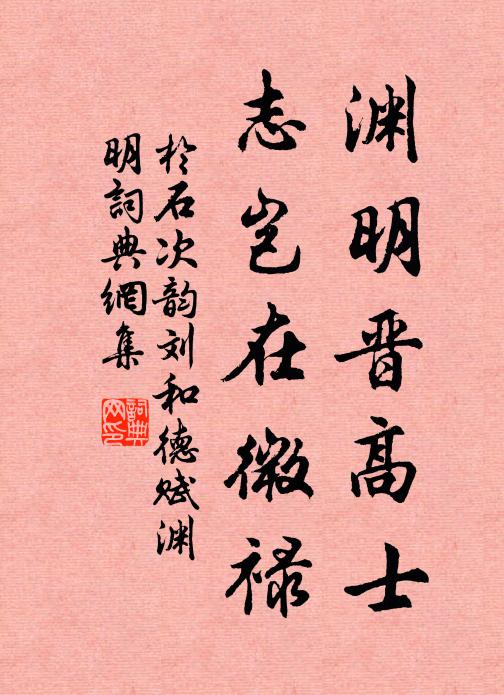 渊明晋高士
志岂在微禄
於石次韵刘和德赋渊
明词典網集
詞典网印